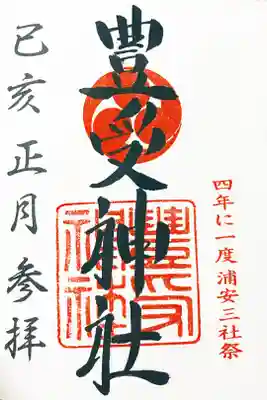 四年に一度浦安三社祭
豊受神社
豊受
神社
己亥 正月 参拝